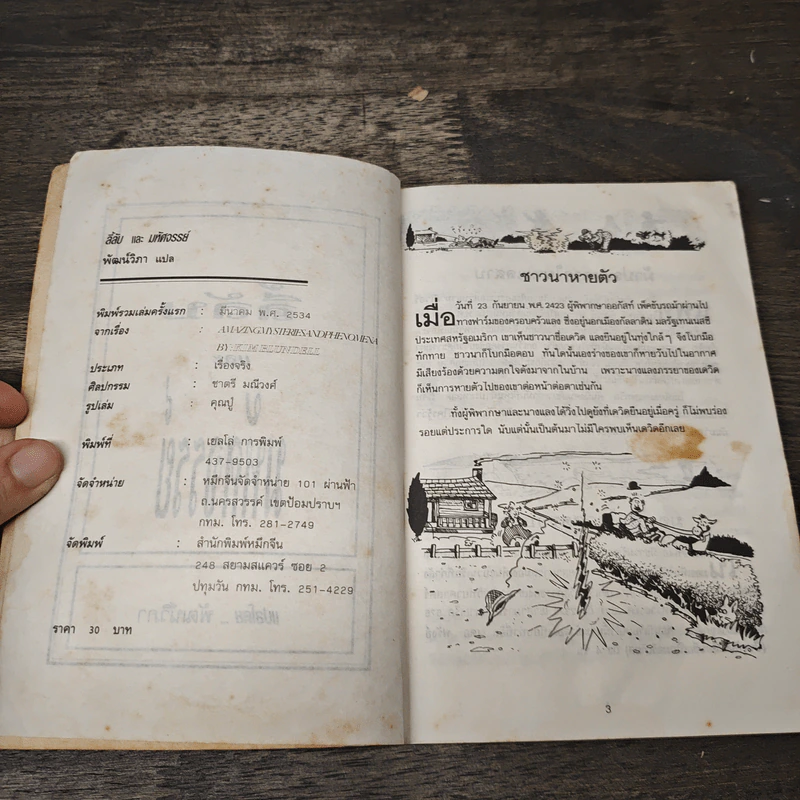 ลี้ลับ และ มหัศจรรย์
พัฒน์วิภา แปล
พิมพ์รวมเล่มครั้งแรก : มีนาคม พ.ศ. 2534
จากเรื่อง : AMAZING MYSTERIES AND PHENOMENA
BY KIM BLUNDELL
ประเภท : เรื่องจริง
ศิลปกรรม : ชาตรี มณีวงศ์
รูปเล่ม : คุณปู่
พิมพ์ที่ : เฮลโล่ การพิมพ์
437-9503
จัดจำหน่าย : หมึกจีนจัดจำหน่าย 101 ผ่านฟ้า
ถ.นครสวรรค์ เขตป้อมปราบฯ
กทม. โทร. 281-2749
จัดพิมพ์ : สำนักพิมพ์หมึกจีน
248 สยามสแควร์ ซอย 2
ปทุมวัน กทม. โทร. 251-4229
ราคา 30 บาท
ชาวนาหายตัว
เมื่อ วันที่ 23 กันยายน พ.ศ. 2423 ผู้พิพากษาออกัสท์ เพ็คขับรถม้าผ่านไป
ทางฟาร์มของครอบครัวแลง ซึ่งอยู่นอกเมืองกัลลาติน มลรัฐเทนเนสซี
ประเทศสหรัฐอเมริกา เขาเห็นชาวนาชื่อเดวิด แลงยืนอยู่ในทุ่งใกล้ๆ จึงโบกมือ
ทักทาย ชาวนาก็โบกมือตอบ ทันใดนั้นเองร่างของเขาก็หายวับไปในอากาศ
มีเสียงร้องด้วยความตกใจดังมาจากในบ้าน เพราะนางแลงภรรยาของเดวิด
ก็เห็นการหายตัวไปของเขาต่อหน้าต่อตาเช่นกัน
ทั้งผู้พิพากษาและนางแลงได้วิ่งไปดูยังที่เดวิดยืนอยู่เมื่อครู่ ก็ไม่พบร่อง
รอยแต่ประการใด นับแต่นั้นเป็นต้นมาไม่มีใครพบเห็นเดวิดอีกเลย
3